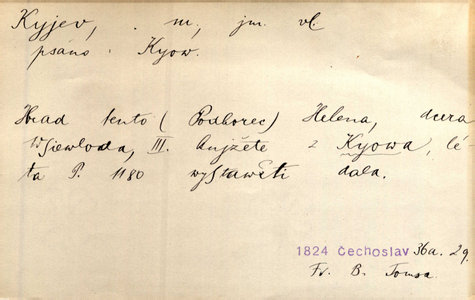 Kyjev, m., jm. vl.
psáno: Kyow.
Hrad tento (Podhorec) Helena, dcera
Wsiewloda, III. knjžete z Kyowa, lé-
ta P. 1180 wystawěti dala.
1824 Čechoslav 36a. 29.
Fr. B. Tomsa